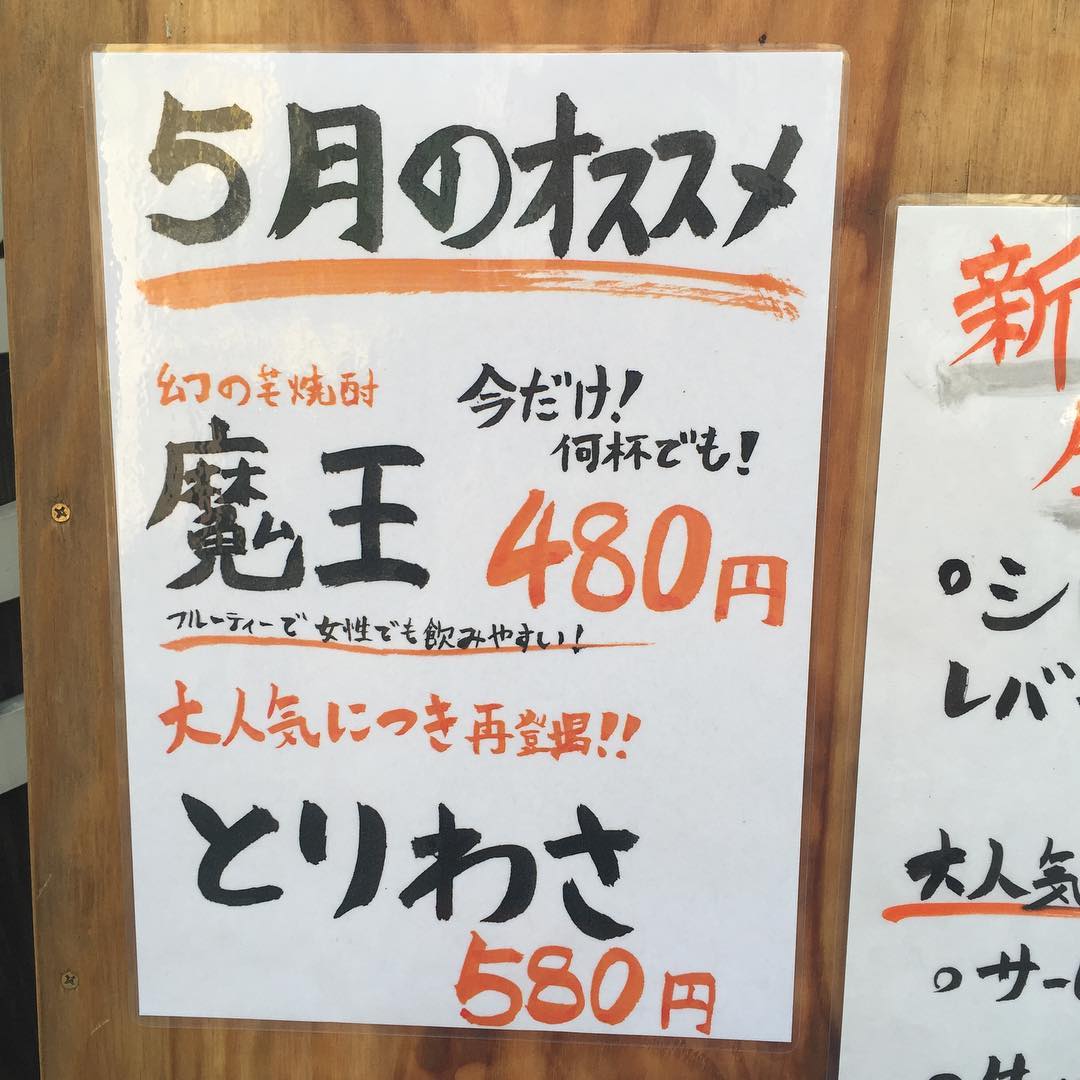 5月のオススメ
幻の芋焼酎
今だけ!
何杯でも!
魔王
480円
フルーティーで女性でも飲みやすい!
大人気につき再登場!!
とりわさ
580円
新
。シ
レバ
大人気
。サー